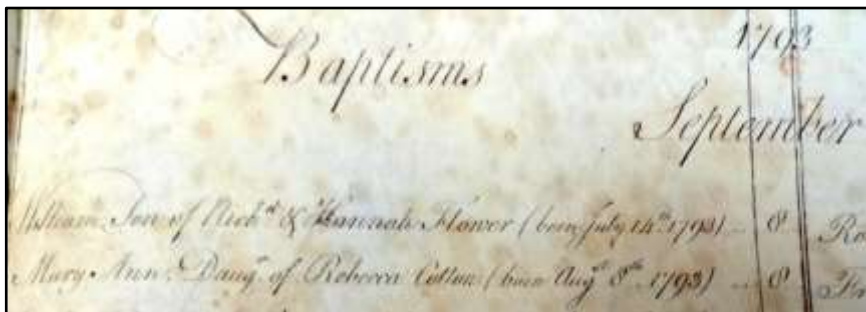 1793
Baptisms
September
William Son of Rich^d & Hannah Flower (born July 14th 1793) 8
Mary Ann Daug^r of Rebecca Cotton (born Aug^st 8th 1793) 8